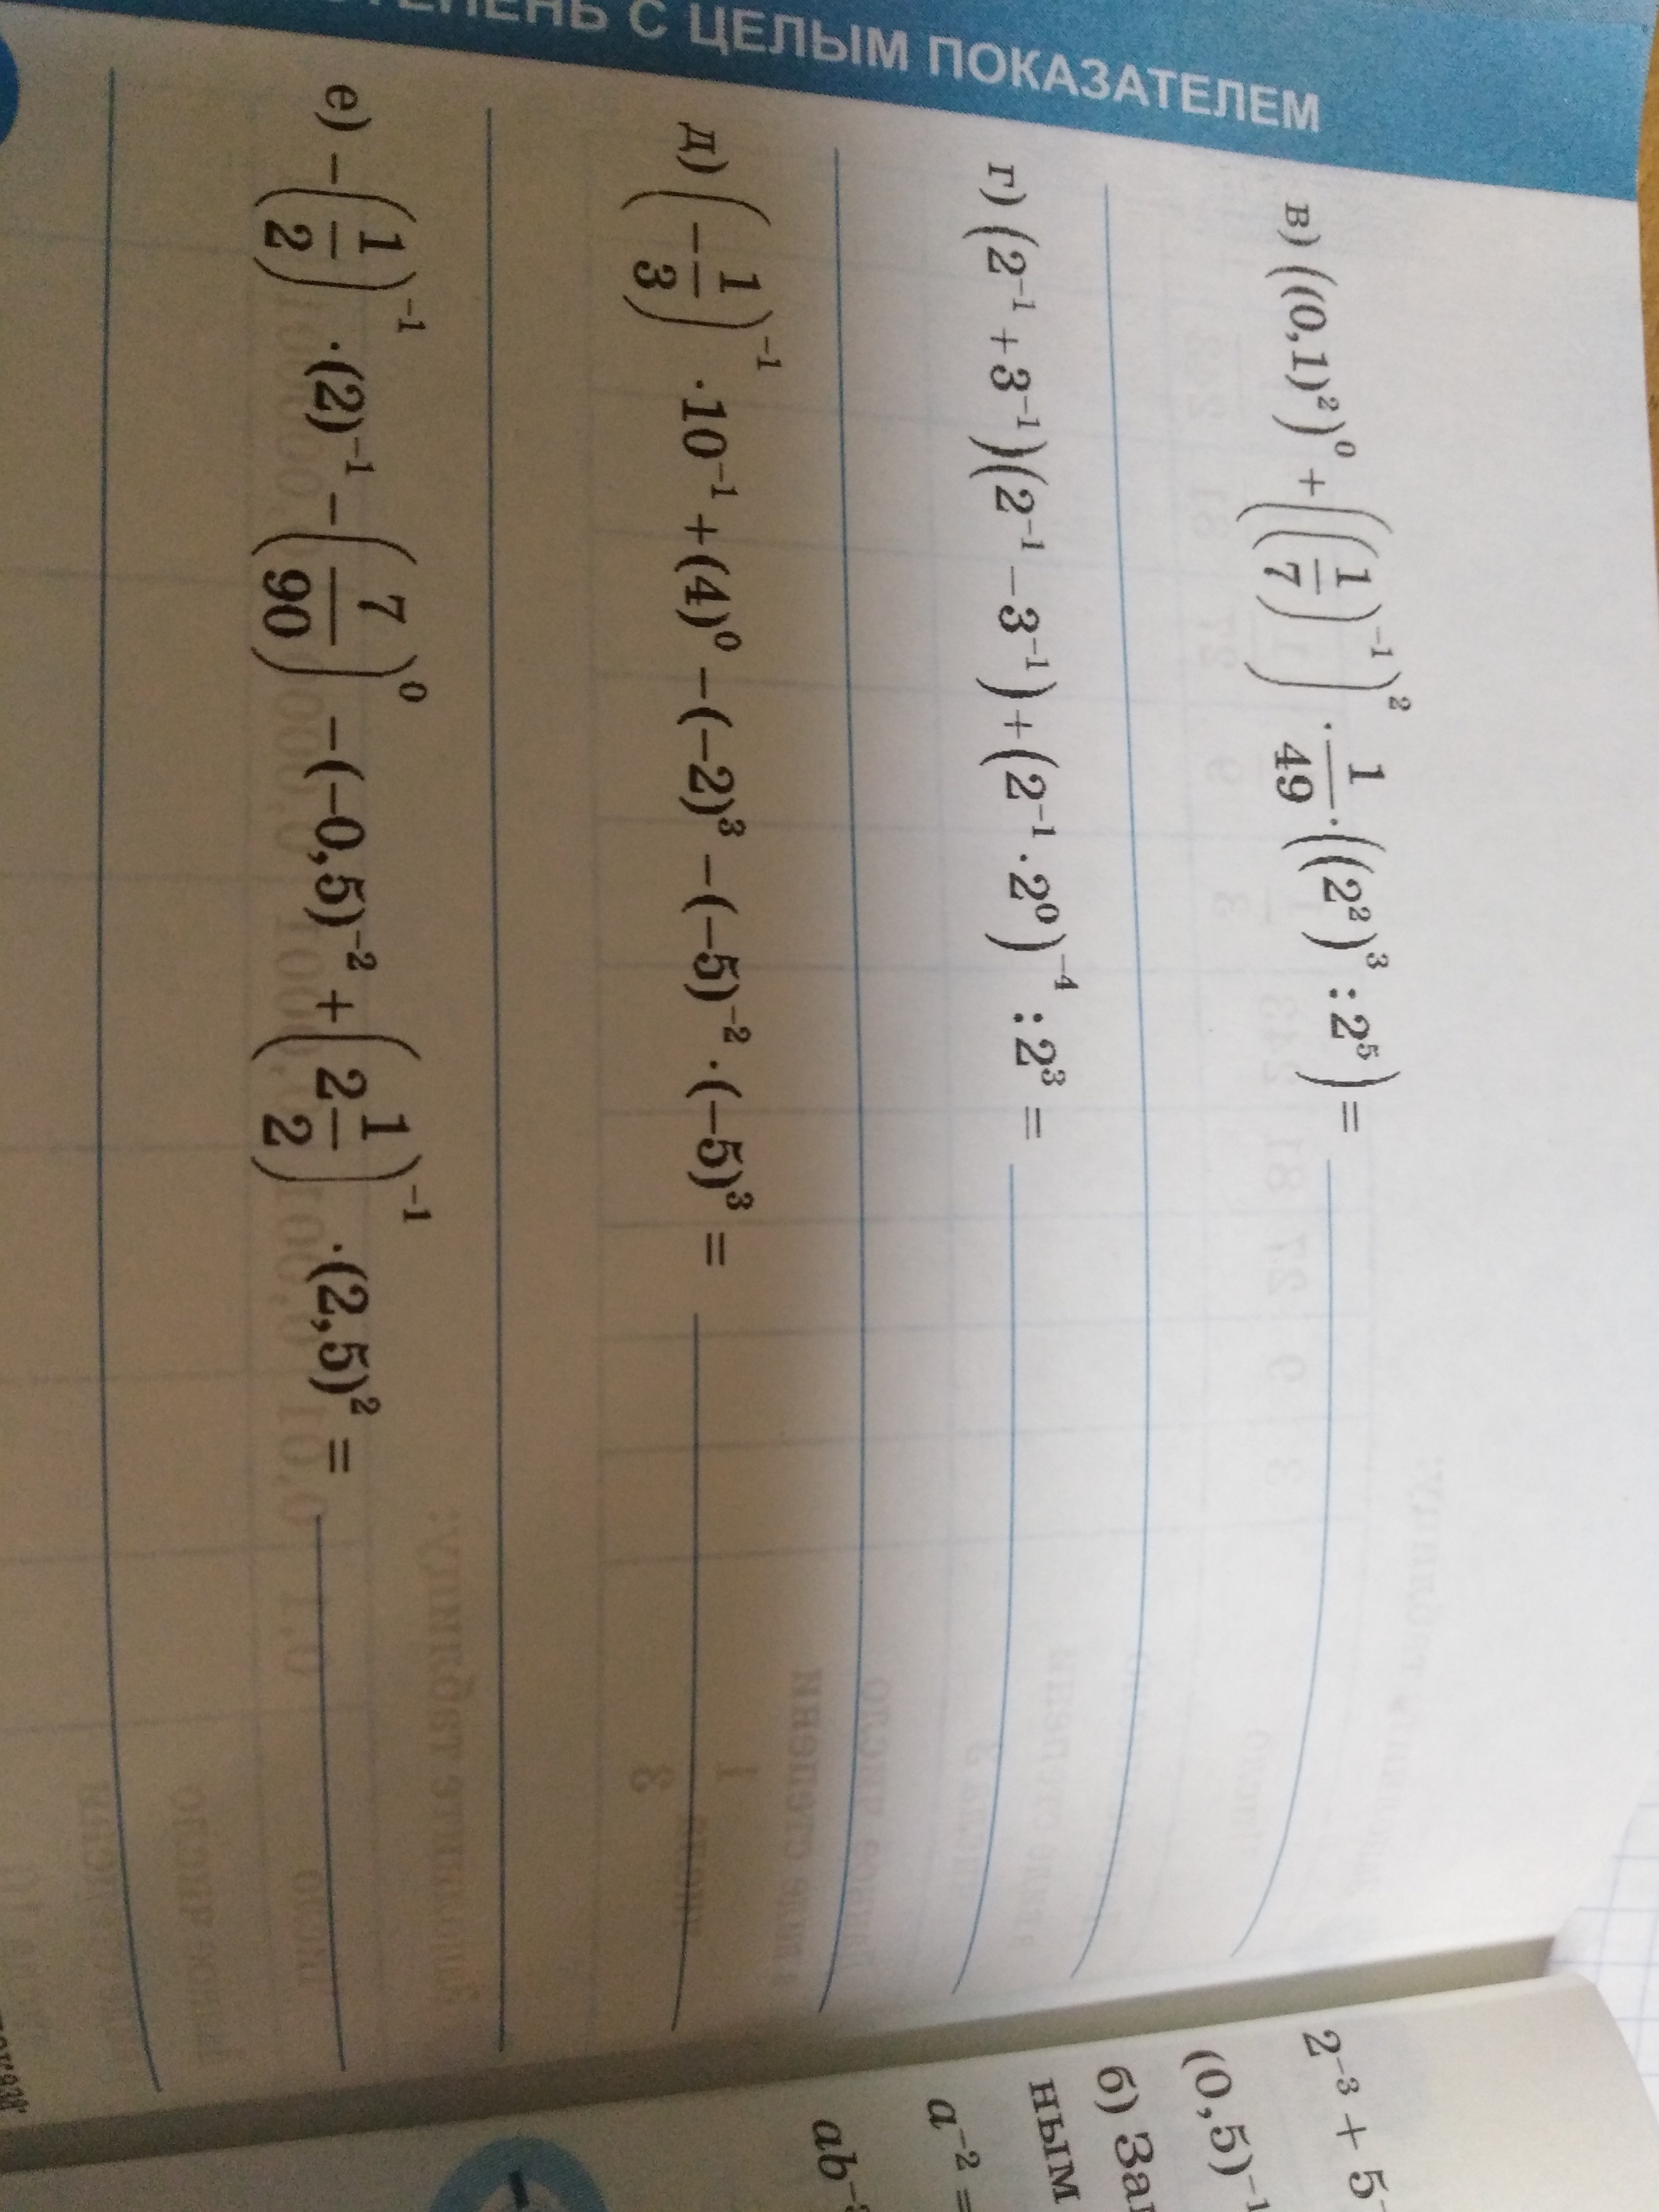 СТЕПЕНЬ С ЦЕЛЫМ ПОКАЗАТЕЛЕМ
в) ((0,1)²)⁰ + ((1/7)⁻¹)² · 1/49 · ((2²)³ : 2⁵) =
г) (2⁻¹ + 3⁻¹)(2⁻¹ − 3⁻¹) + (2⁻¹ · 2⁰)⁻⁴ : 2³ =
д) (−1/3)⁻¹ · 10⁻¹ + (4)⁰ − (−2)³ − (−5)⁻² · (−5)³ =
е) −(1/2)⁻¹ · (2)⁻¹ − (7/90)⁰ − (−0,5)⁻² + (2 1/2)⁻¹ · (2,5)² =
2⁻³ + 5⁻
(0,5)⁻¹
б) За
ным
a⁻² =
ab⁻